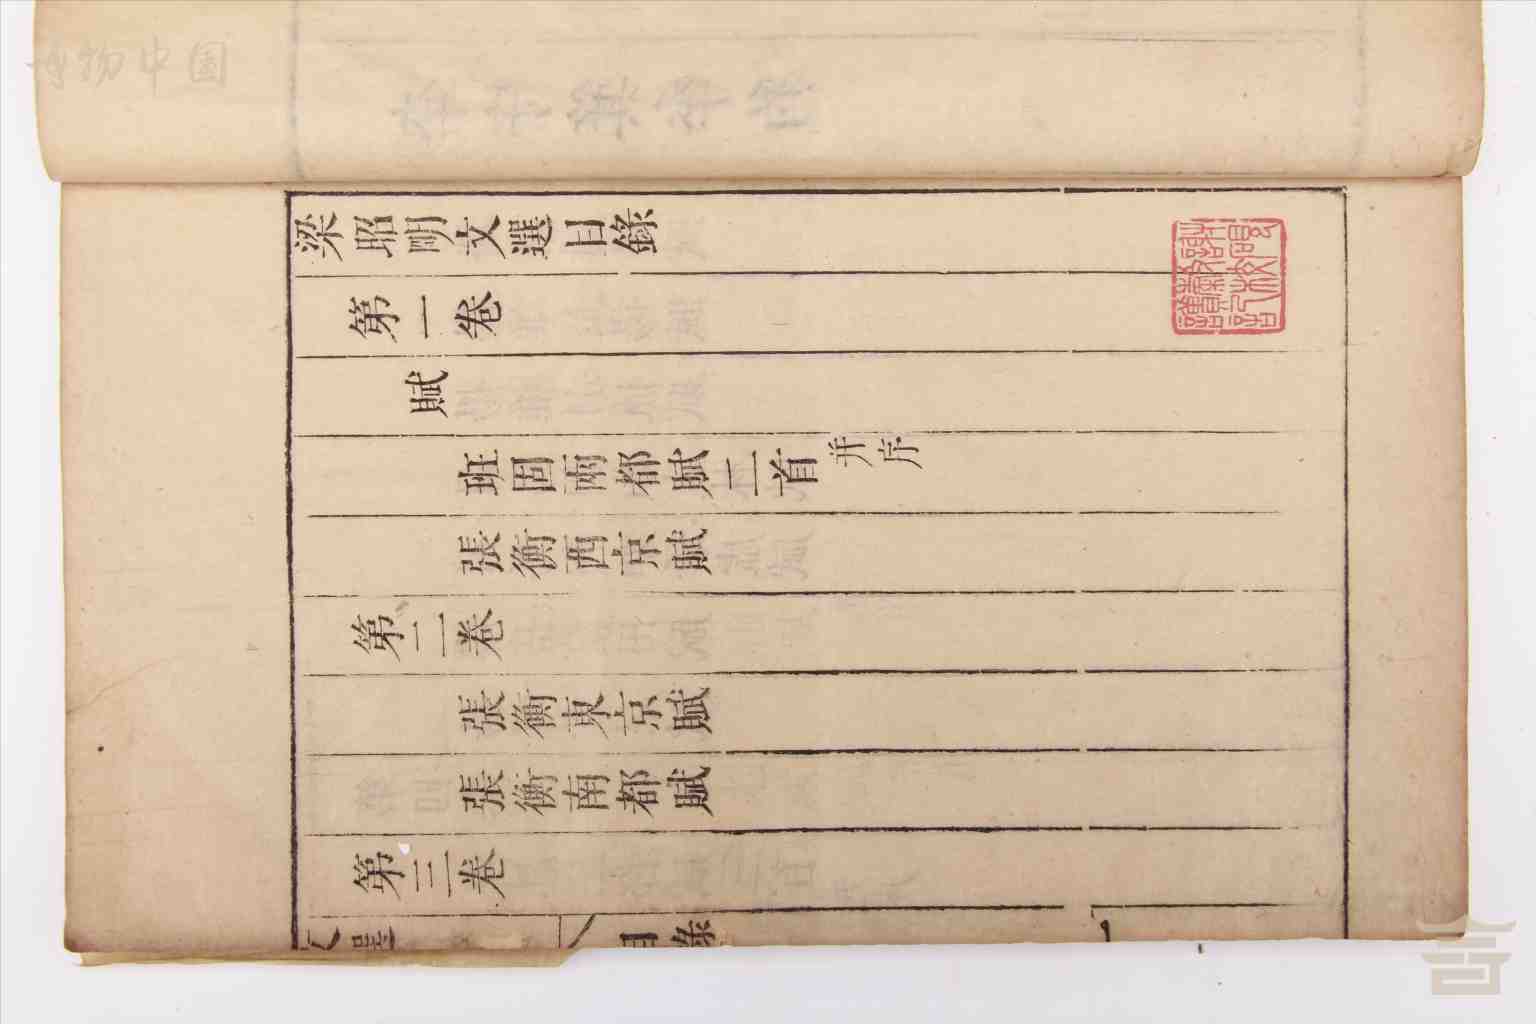 梁昭明文選目錄
第一卷
賦
班固兩都賦二首并序
張衡西京賦
第二卷
張衡東京賦
張衡南都賦
第三卷
目錄
博物中國